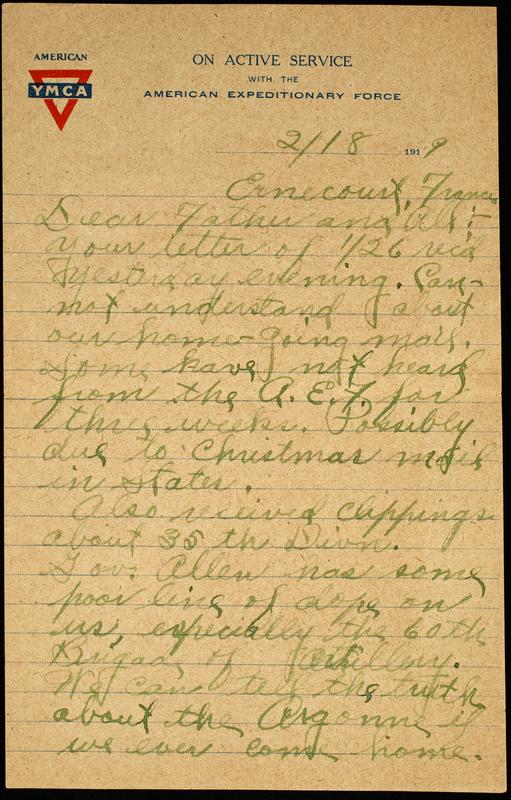 AMERICAN
YMCA
ON ACTIVE SERVICE
WITH THE
AMERICAN EXPEDITIONARY FORCE
2/18 1919
Ernecourt, France
Dear Father and All:-
Your letter of 1/26 recd
yesterday evening. Can-
not understand about
our home-going mail.
Some have not heard
from the A.E.F. for
three weeks. Possibly
due to Christmas mail
in States.
Also received clippings
about 35th Divn.
Gov. Allen has some
poor line of dope on
us, especially the 60th
Brigade of Artillery.
We can tell the truth
about the Argonne if
we ever come home.